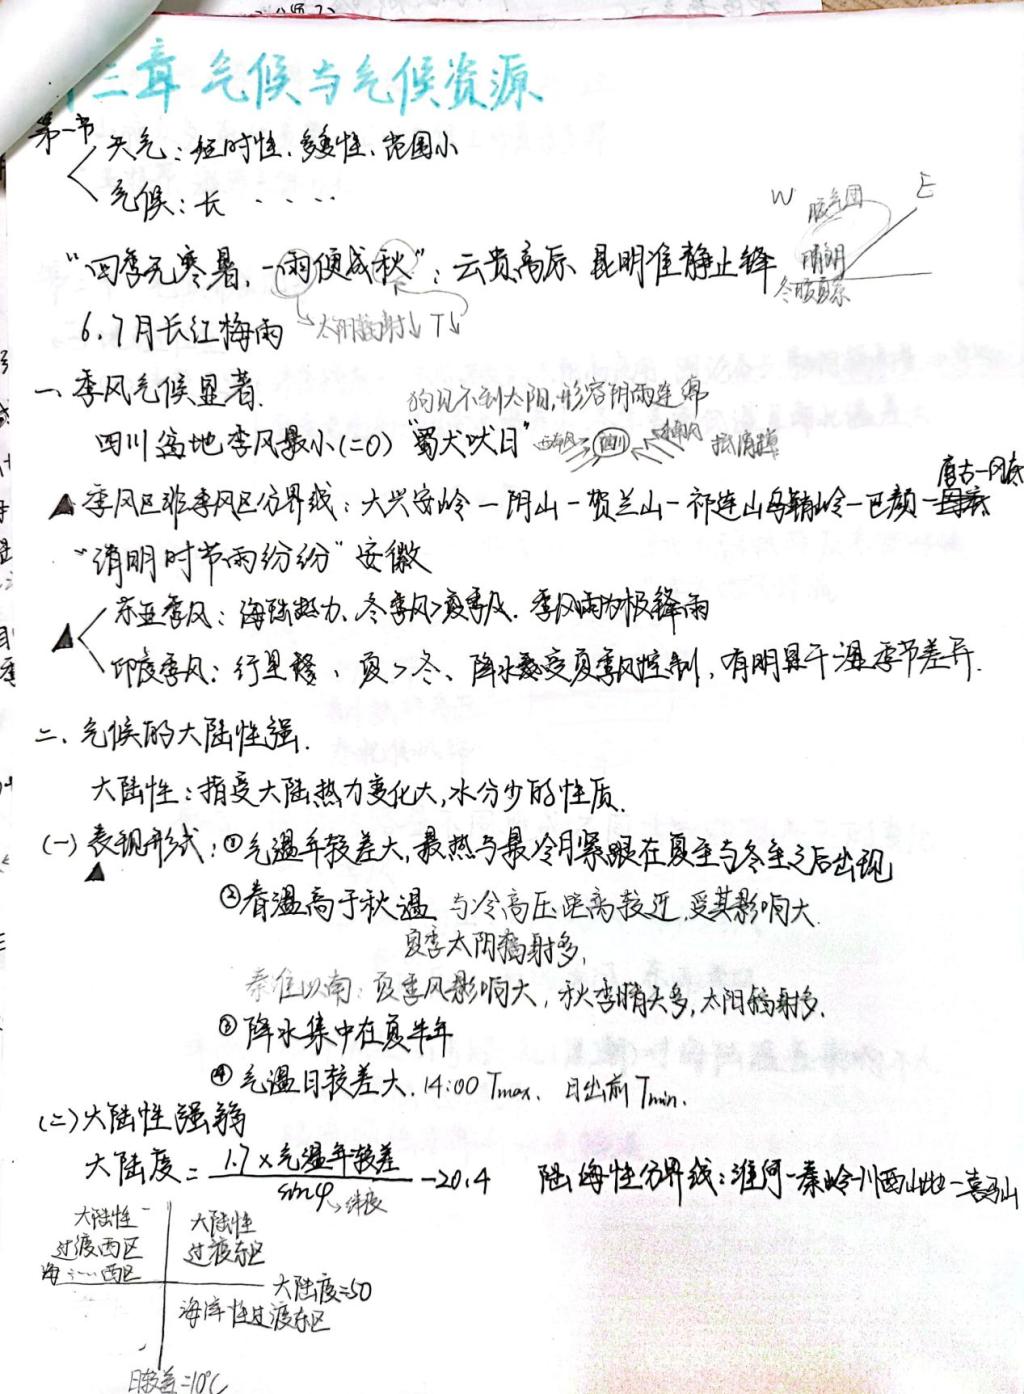 三章 气候与气候资源
第一节
天气：短时性、多变性、范围小
气候：长 ····
W 暖气团 E
"四季无寒暑，一雨便成秋"：云贵高原 昆明准静止锋
晴朗
太阳辐射↓ T↓
6.7月长江梅雨
一、季风气候显著.
狗见不到太阳,形容阴雨连绵
四川盆地季风最小(=0) "蜀犬吠日"
四川
抵消掉
唐古一冈底
▲季风区非季风区分界线：大兴安岭一阴山一贺兰山一祁连山乌鞘岭一巴颜一
"清明时节雨纷纷" 安徽
▲ 东亚季风：海陆热力、冬季风>夏季风. 季风雨为极锋雨
印度季风：行星移、夏>冬、降水受夏季风控制，有明显干湿季节差异.
二、气候的大陆性强.
大陆性：指受大陆热力变化大,水分少的性质.
(一) 表现形式：①气温年较差大,最热与最冷月紧跟在夏至与冬至之后出现
▲
②春温高于秋温 与冷高压距离较近,受其影响大.
夏季太阳辐射多,
秦淮以南：夏季风影响大，秋季晴天多,太阳辐射多.
③降水集中在夏半年
④气温日较差大. 14:00 Tmax. 日出前 Tmin.
(二)大陆性强弱
大陆度= 1.7×气温年较差 / sinφ -20.4 陆海性分界线：淮河一秦岭一川西山地一喜马山
纬度
大陆性
过渡西区
海……西区
大陆性
过渡东区
大陆度=50
海洋性过渡东区
日较差=10℃